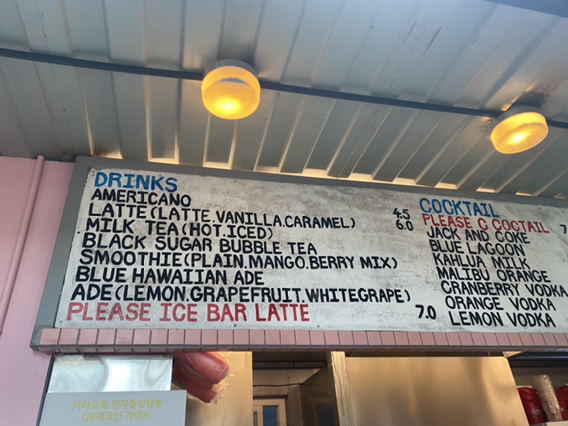 DRINKS
AMERICANO 4.5
LATTE(LATTE.VANILLA.CARAMEL) 6.0
MILK TEA(HOT.ICED)
BLACK SUGAR BUBBLE TEA
SMOOTHIE(PLAIN.MANGO.BERRY MIX)
BLUE HAWAIIAN ADE
ADE(LEMON.GRAPEFRUIT.WHITEGRAPE)
PLEASE ICE BAR LATTE 7.0
COCKTAIL
PLEASE C COCTAIL 7
JACK AND COKE
BLUE LAGOON
KAHLUA MILK
MALIBU ORANGE
CRANBERRY VODKA
ORANGE VODKA
LEMON VODKA
카카오톡 전자출입명부
QR체크인 가이드